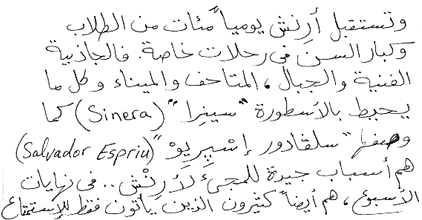 وتستقبل أرنش يومياً مئات من الطلاب
وكبار السن في رحلات خاصة. فالجاذبية
الفنية والجبال، المتاحف والميناء وكل ما
يحيط بالأسطورة "سينرا" (Sinera) كما
وصفها "سلڤادور إسپريو" (Salvador Espriu)
هم أسباب جيدة للمجيء لأرنش.. في نهايات
الأسبوع، هم أيضاً كثيرون الذين يأتون فقط للإستمتاع